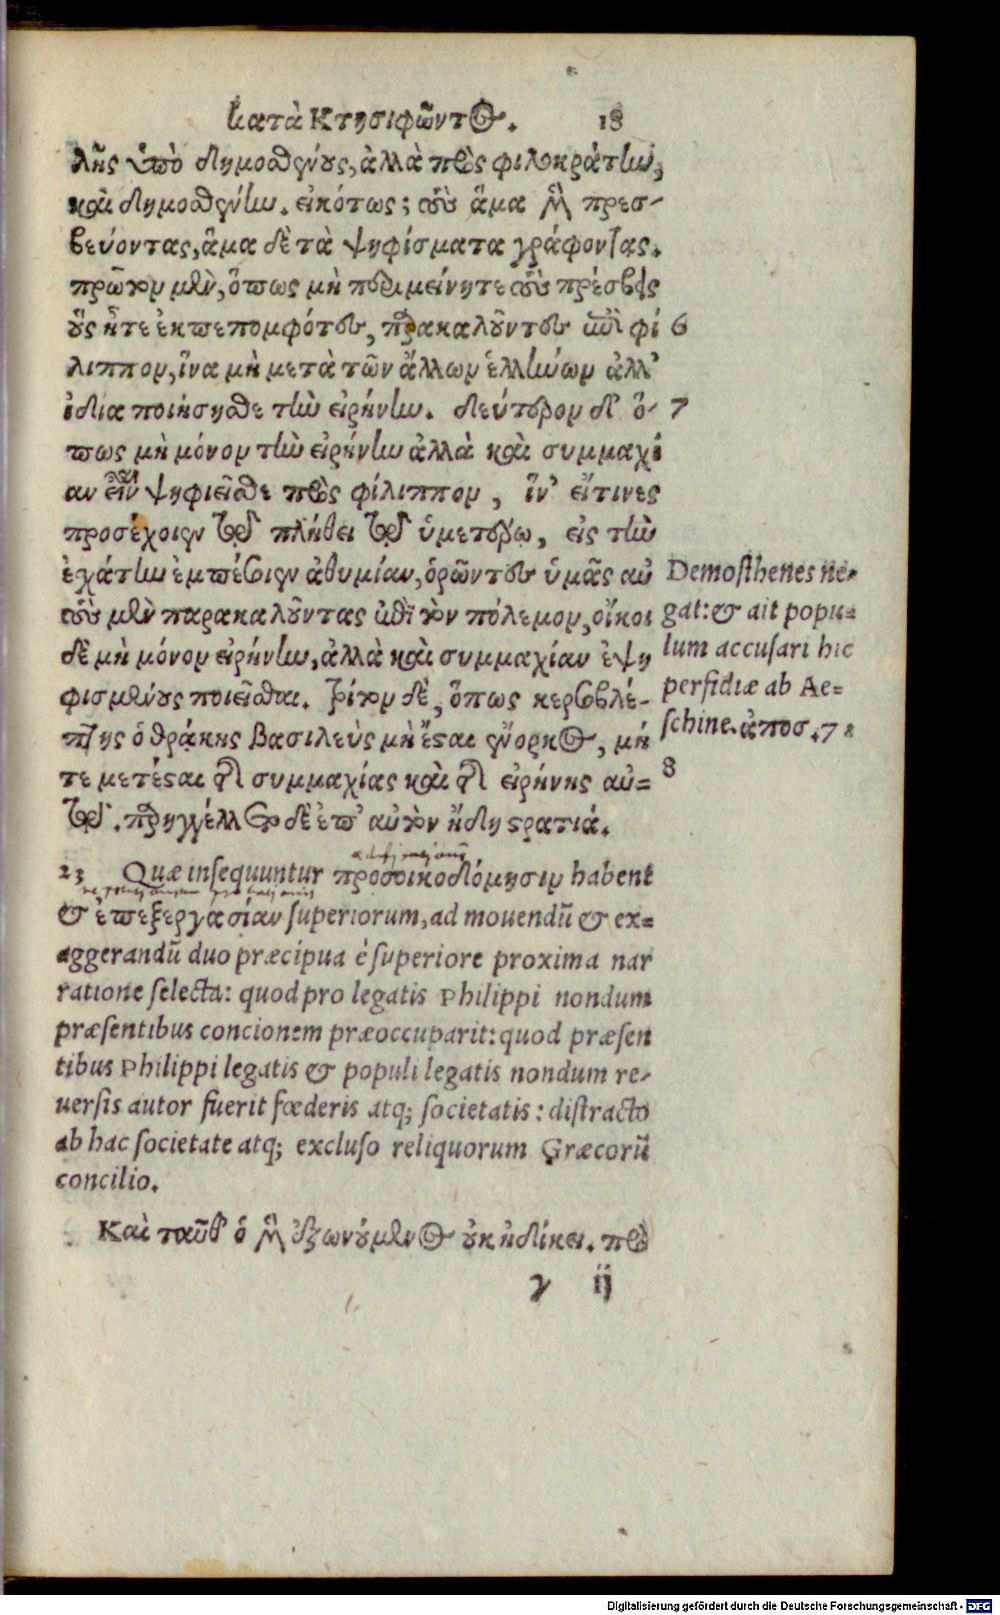 κατὰ Κτησιφῶντος. 18
λῆς ὑπὸ δημοσθένους, ἀλλὰ πρὸς φιλοκράτην,
καὶ δημοσθένην. εἰκότως; τοὺς ἅμα μὲν πρεσ-
βεύοντας, ἅμα δὲ τὰ ψηφίσματα γράφοντας.
πρῶτον μὲν, ὅπως μὴ περιμείνητε τοὺς πρέσβεις
οὓς ἦτε ἐκπεπομφότες, παρακαλοῦντες ἐπὶ φί 6
λιππον, ἵνα μὴ μετὰ τῶν ἄλλων ἑλλήνων ἀλλ'
ἰδία ποιήσησθε τὴν εἰρήνην. δεύτερον δ' ὅ- 7
πως μὴ μόνον τὴν εἰρήνην ἀλλὰ καὶ συμμαχί
αν εἶναι ψηφιεῖσθε πρὸς φίλιππον, ἵν' εἴτινες
προσέχοιεν τῷ πλήθει τῷ ὑμετέρῳ, εἰς τὴν
ἐχάτην ἐμπέσοιεν ἀθυμίαν, ὁρῶντες ὑμᾶς αὐ
τοὺς μὲν παρακαλοῦντας ἐπὶ τὸν πόλεμον, οἴκοι
δὲ μὴ μόνον εἰρήνην, ἀλλὰ καὶ συμμαχίαν ἐψη
φισμένους ποιεῖσθαι. τρίτον δὲ, ὅπως κερσοβλέ-
πτης ὁ θράκης βασιλεὺς μὴ ἔσται ἔνορκος, μή
τε μετέσται τῆς συμμαχίας καὶ τῆς εἰρήνης αὐ=
τῷ. παρηγγέλλετο δὲ ἐπ' αὐτὸν ἤδη στρατιά.
Demosthenes ne-
gat: & ait popu=
lum accusari hic
perfidiæ ab Ae=
schine. ἀποσ. 7 8
8
23 Quæ insequuntur προσοικοδόμησιν habent
& ἐπεξεργασίαν superiorum, ad mouendũ & ex=
aggerandũ duo præcipua è superiore proxima nar
ratione selecta: quod pro legatis Philippi nondum
præsentibus concionem præoccuparit: quod præsen
tibus Philippi legatis & populi legatis nondum re-
uersis autor fuerit fœderis atq; societatis: distracto
ab hac societate atq; excluso reliquorum Græcorũ
concilio.
Καὶ ταῦθ' ὁ μὲν ἐξωνούμενος οὐκ ἠδίκει. πρὸ
γ ij
Digitalisierung gefördert durch die Deutsche Forschungsgemeinschaft - DFG